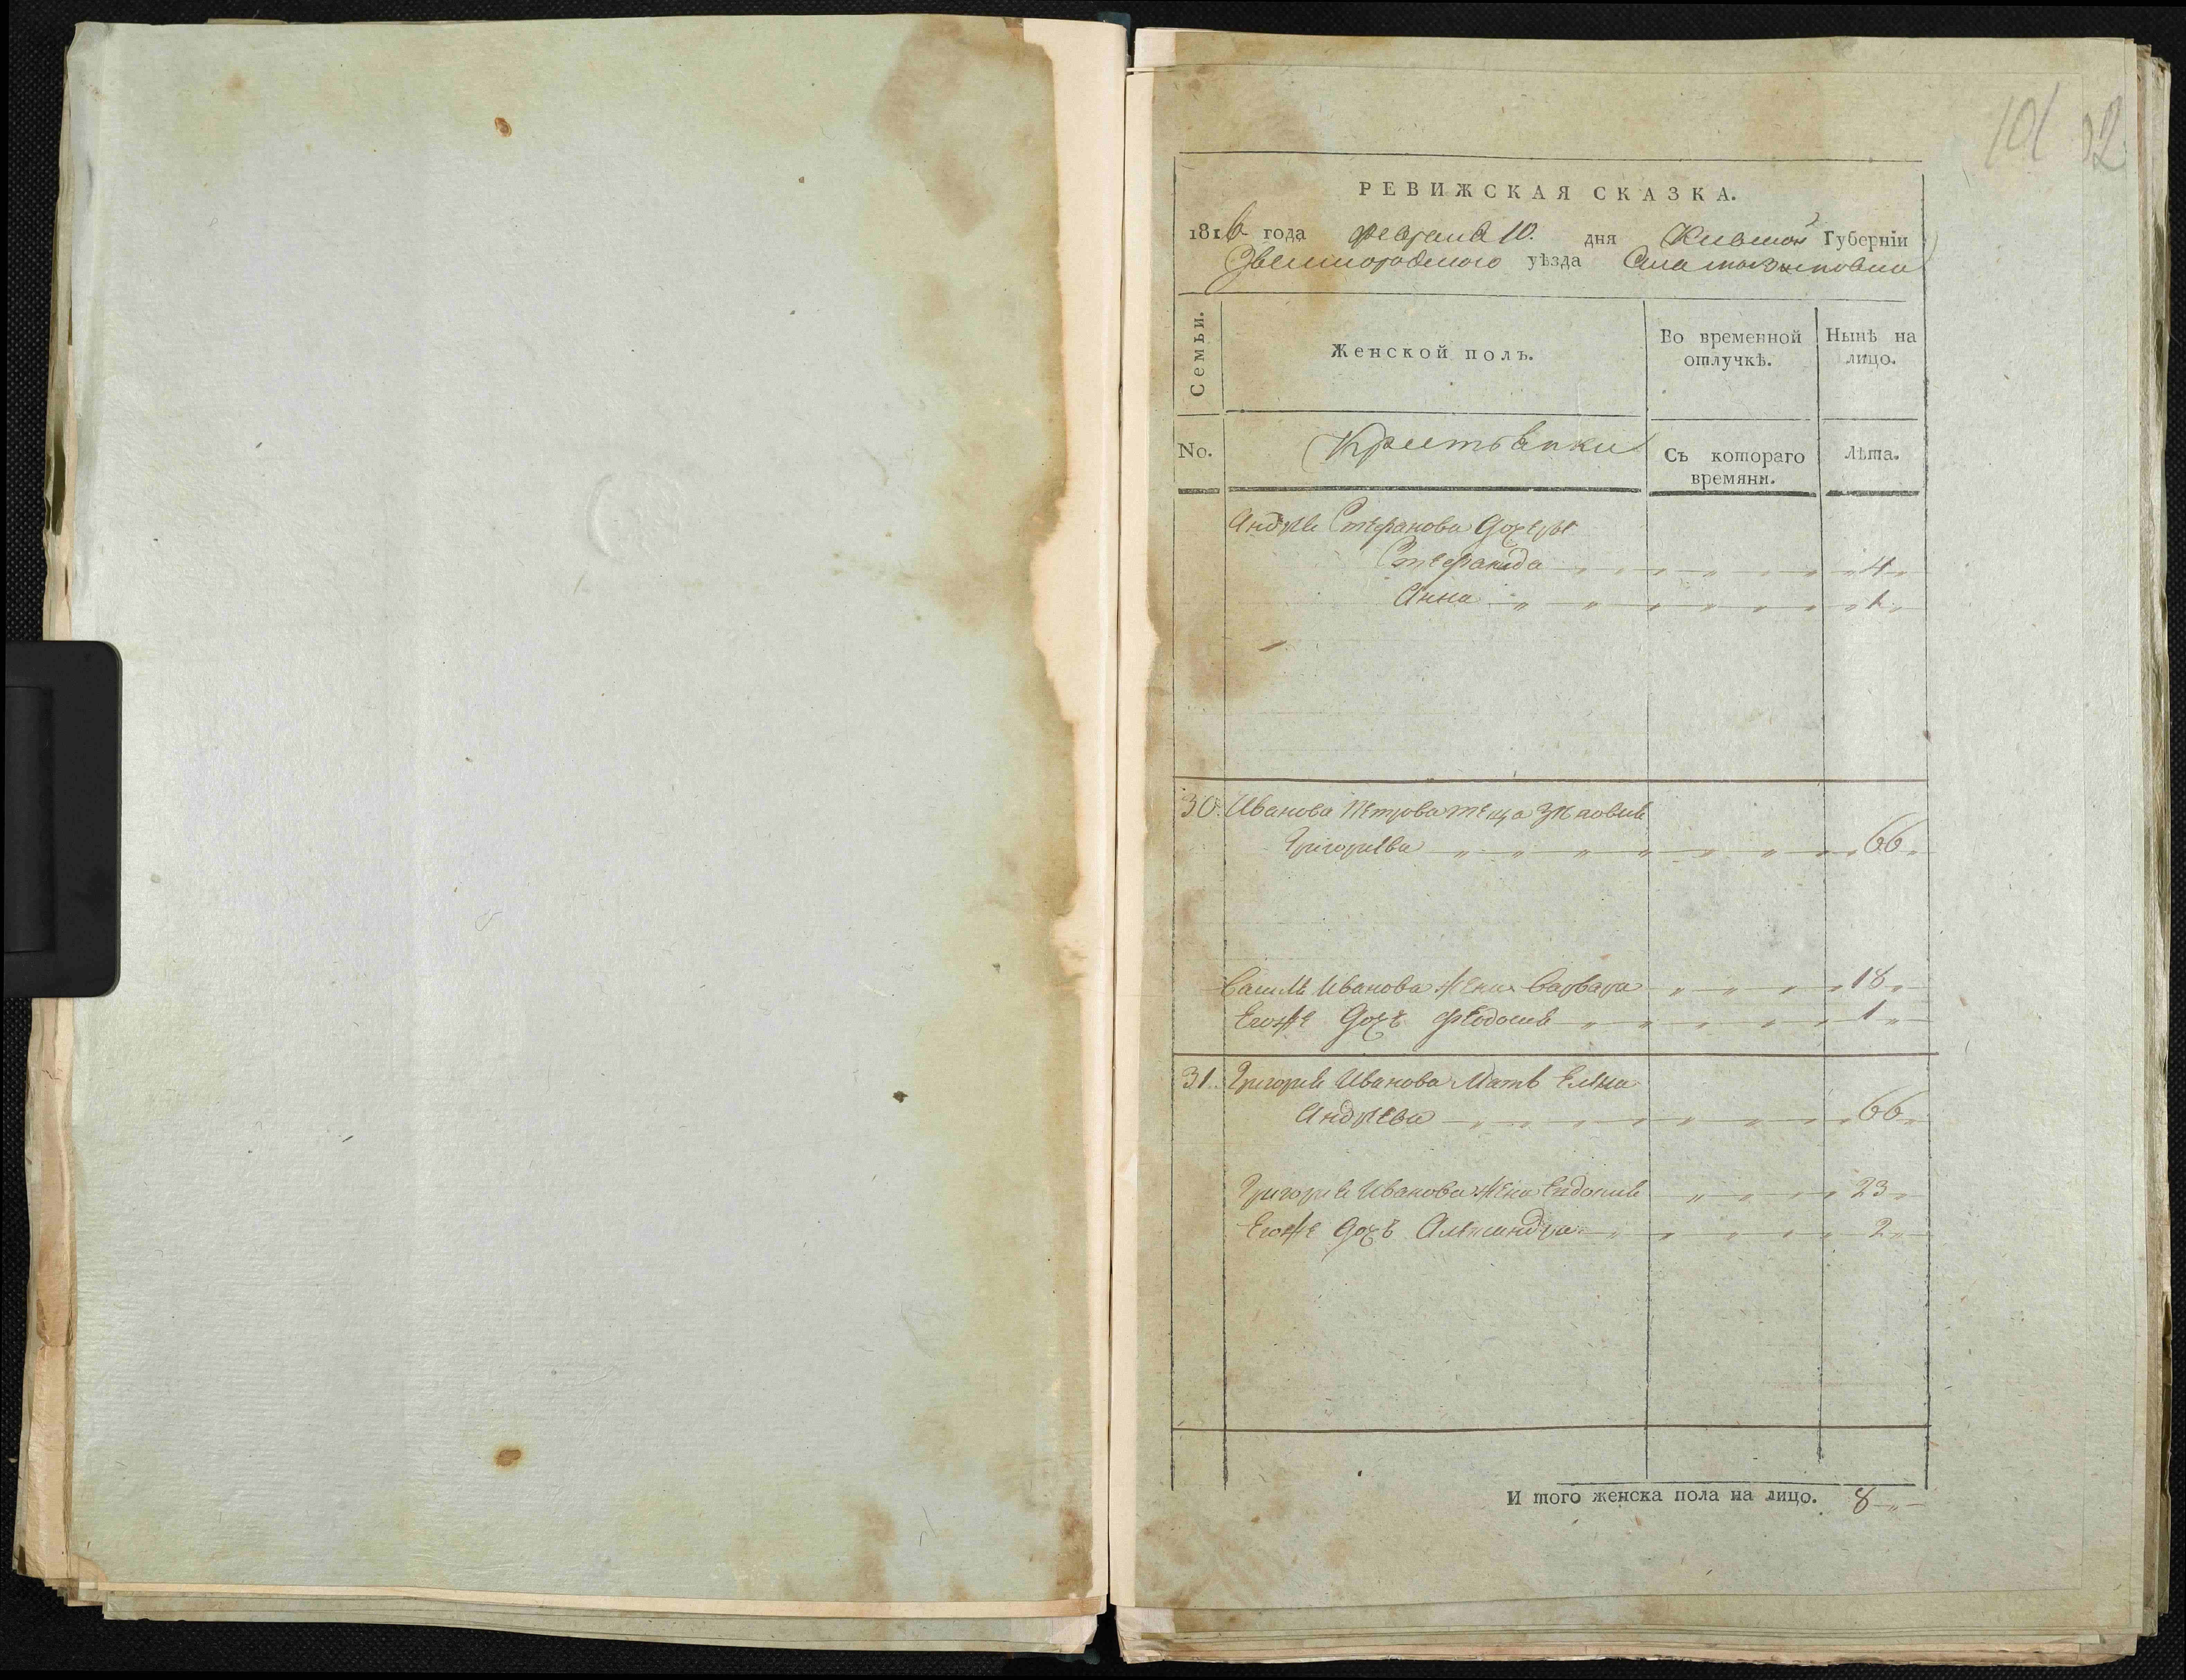 101 02
РЕВИЖСКАЯ СКАЗКА.
1816 года февраля 10. дня Киевской Губерніи
Звенигородского уѣзда Села
Семьи. Женской полъ. Во временной отлучкѣ. Нынѣ на лицо.
No. Крестьянки Съ котораго времяни. Лѣта.
Андрѣя Стефанова дочери
Стефанида 4
Анна 1
30. Иванова Петрова теща Зѣновия
Григориева 66
Василя Иванова жена Варвара 18
Егоже дочь Феодосия 1
31. Григория Иванова Мать Елена
Андрѣева 66
Григория Иванова жена Евдокия 23
Егоже дочь Александра 2
И того женска пола на лицо. 8